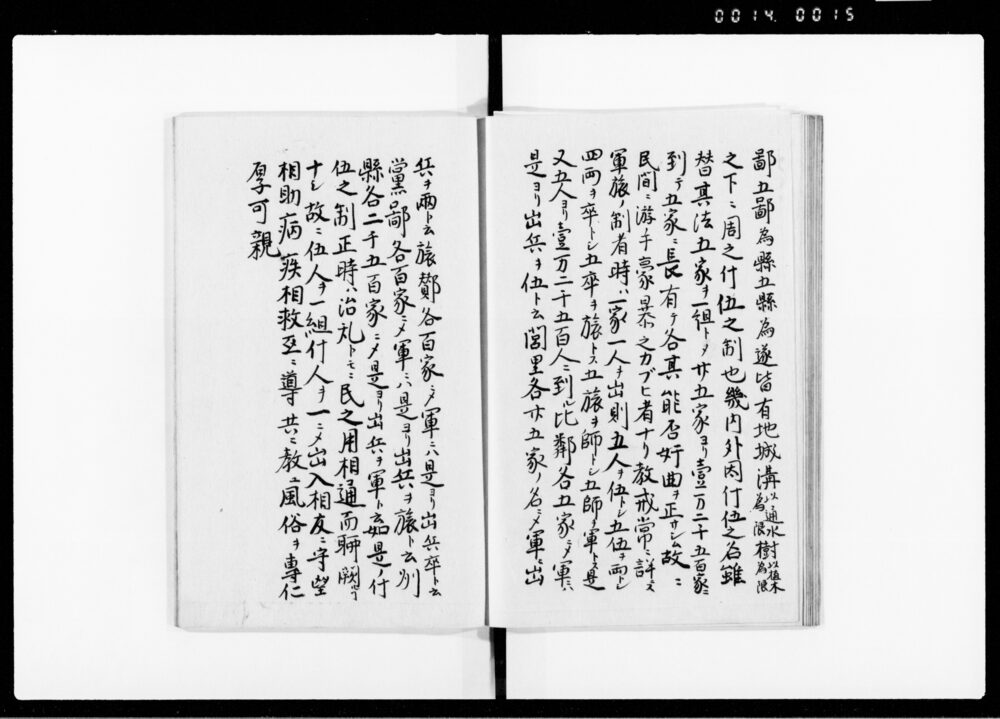 0014 0015
鄙五鄙為縣五縣為遂皆有地域溝以通水為限樹以植木為限
之下ニ周之什伍之制也幾内外因什伍之名雖
替其法五家ヲ一組トメ廿五家ヨリ壹万二千五百家ニ
到テ五家ニ長有テ各其能否奸曲ヲ正サシム故ニ
民間ニ游手豪暴之カブヒ者ナリ教戒常ニ詳ニス
軍旅ノ制者時ハ一家一人ヲ出則五人ヲ伍トシ五伍ヲ両トシ
四両ヲ卒トシ五卒ヲ旅トス五旅ヲ師トシ五師ヲ軍トス是
又五人ヨリ壹万二千五百人ニ到比鄰各五家ニメ軍ニハ
是ヨリ出兵ヲ伍ト云閭里各廿五家ノ名ニメ軍ニ出
兵ヲ兩ト云旅酇各百家ニメ軍ニハ是ヨリ出兵卒ト云
黨鄙各百家ニメ軍ニハ是ヨリ出兵ヲ旅ト云州
縣各二千五百家ニメ是ヨリ出兵ヲ軍ト云如是ノ什
伍之制正時ハ治乱トモニ民之用相通而聊闕
ナシ故ニ伍人ヲ一組什人ヲ一ニメ出入相友ニ守望
相助病疾相救至ニ導共ニ教ニ風俗ヲ専仁
厚可親